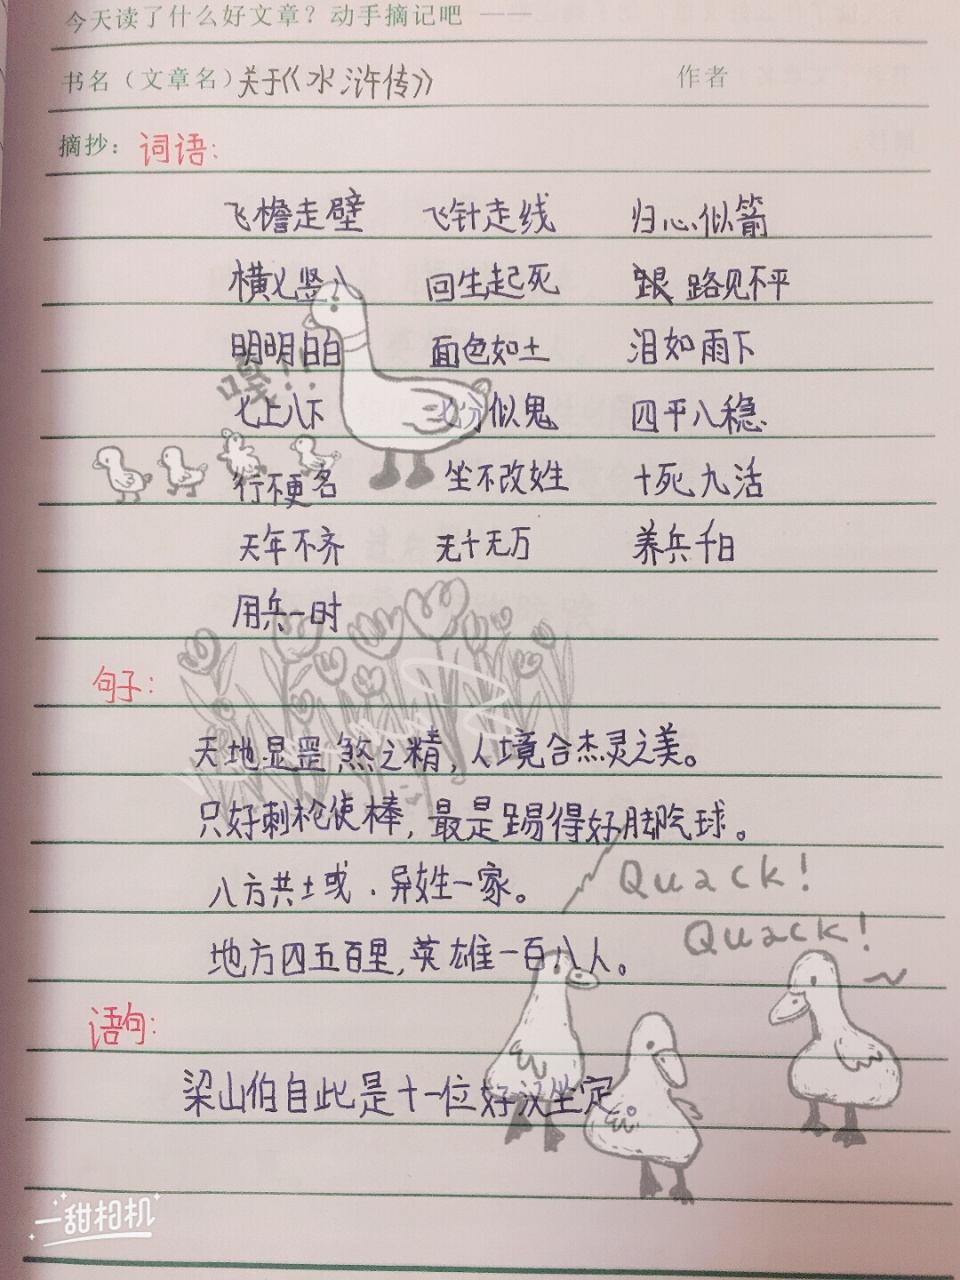 今天读了什么好文章？动手摘记吧 ——
书名（文章名）关于《水浒传》 作者
摘抄：词语：
飞檐走壁 飞针走线 归心似箭
横七竖八 回生起死 踉 路见不平
明明白白 面色如土 泪如雨下
嘎!!
七上八下 七分似鬼 四平八稳
行不更名 坐不改姓 十死九活
天年不齐 无千无万 养兵千日
用兵一时
句子：
天地显罡煞之精，人境合杰灵之美。
只好刺枪使棒，最是踢得好脚气球。
八方共土或．异姓一家。
Quack!
Quack!
地方四五百里，英雄一百八人。
语句：
梁山伯自此是十一位好汉坐定。
一甜相机